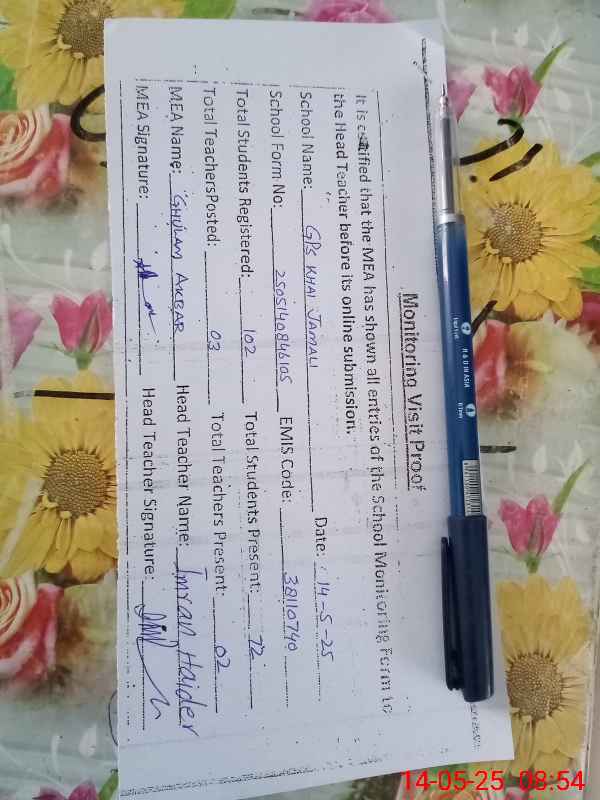 Monitoring Visit Proof
It is certified that the MEA has shown all entries of the School Monitoring Form to
the Head Teacher before its online submission.
School Name: GPS KHAI JAMALI Date: 14-5-25
School Form No: 2505140846105 EMIS Code: 38110740
Total Students Registered: 102 Total Students Present: 72
Total TeachersPosted: 03 Total Teachers Present: 02
MEA Name: GHULAM AKBAR Head Teacher Name: Imran Haider
MEA Signature: Head Teacher Signature:
14-05-25 08:54